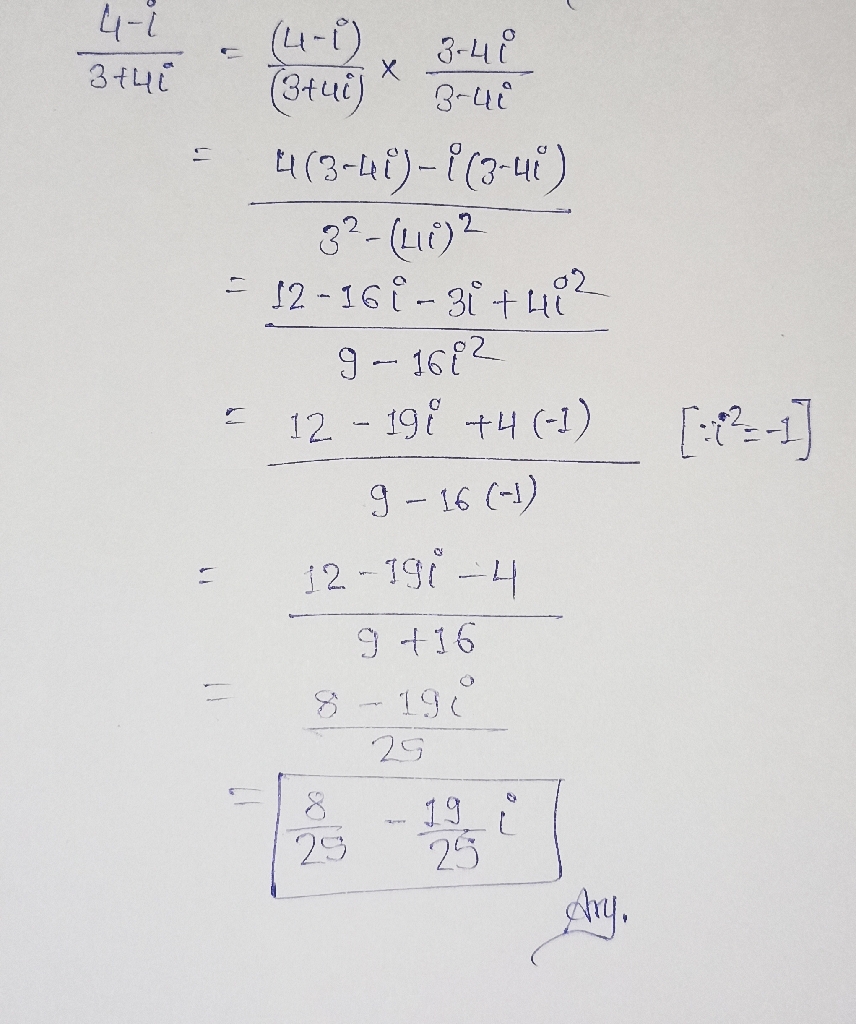 (4-i)/(3+4i) = (4-i)/(3+4i) × (3-4i)/(3-4i)
= (4(3-4i)-i(3-4i))/(3²-(4i)²)
= (12-16i-3i+4i²)/(9-16i²)
= (12-19i+4(-1))/(9-16(-1)) [∵i²=-1]
= (12-19i-4)/(9+16)
= (8-19i)/25
= 8/25 - 19/25 i